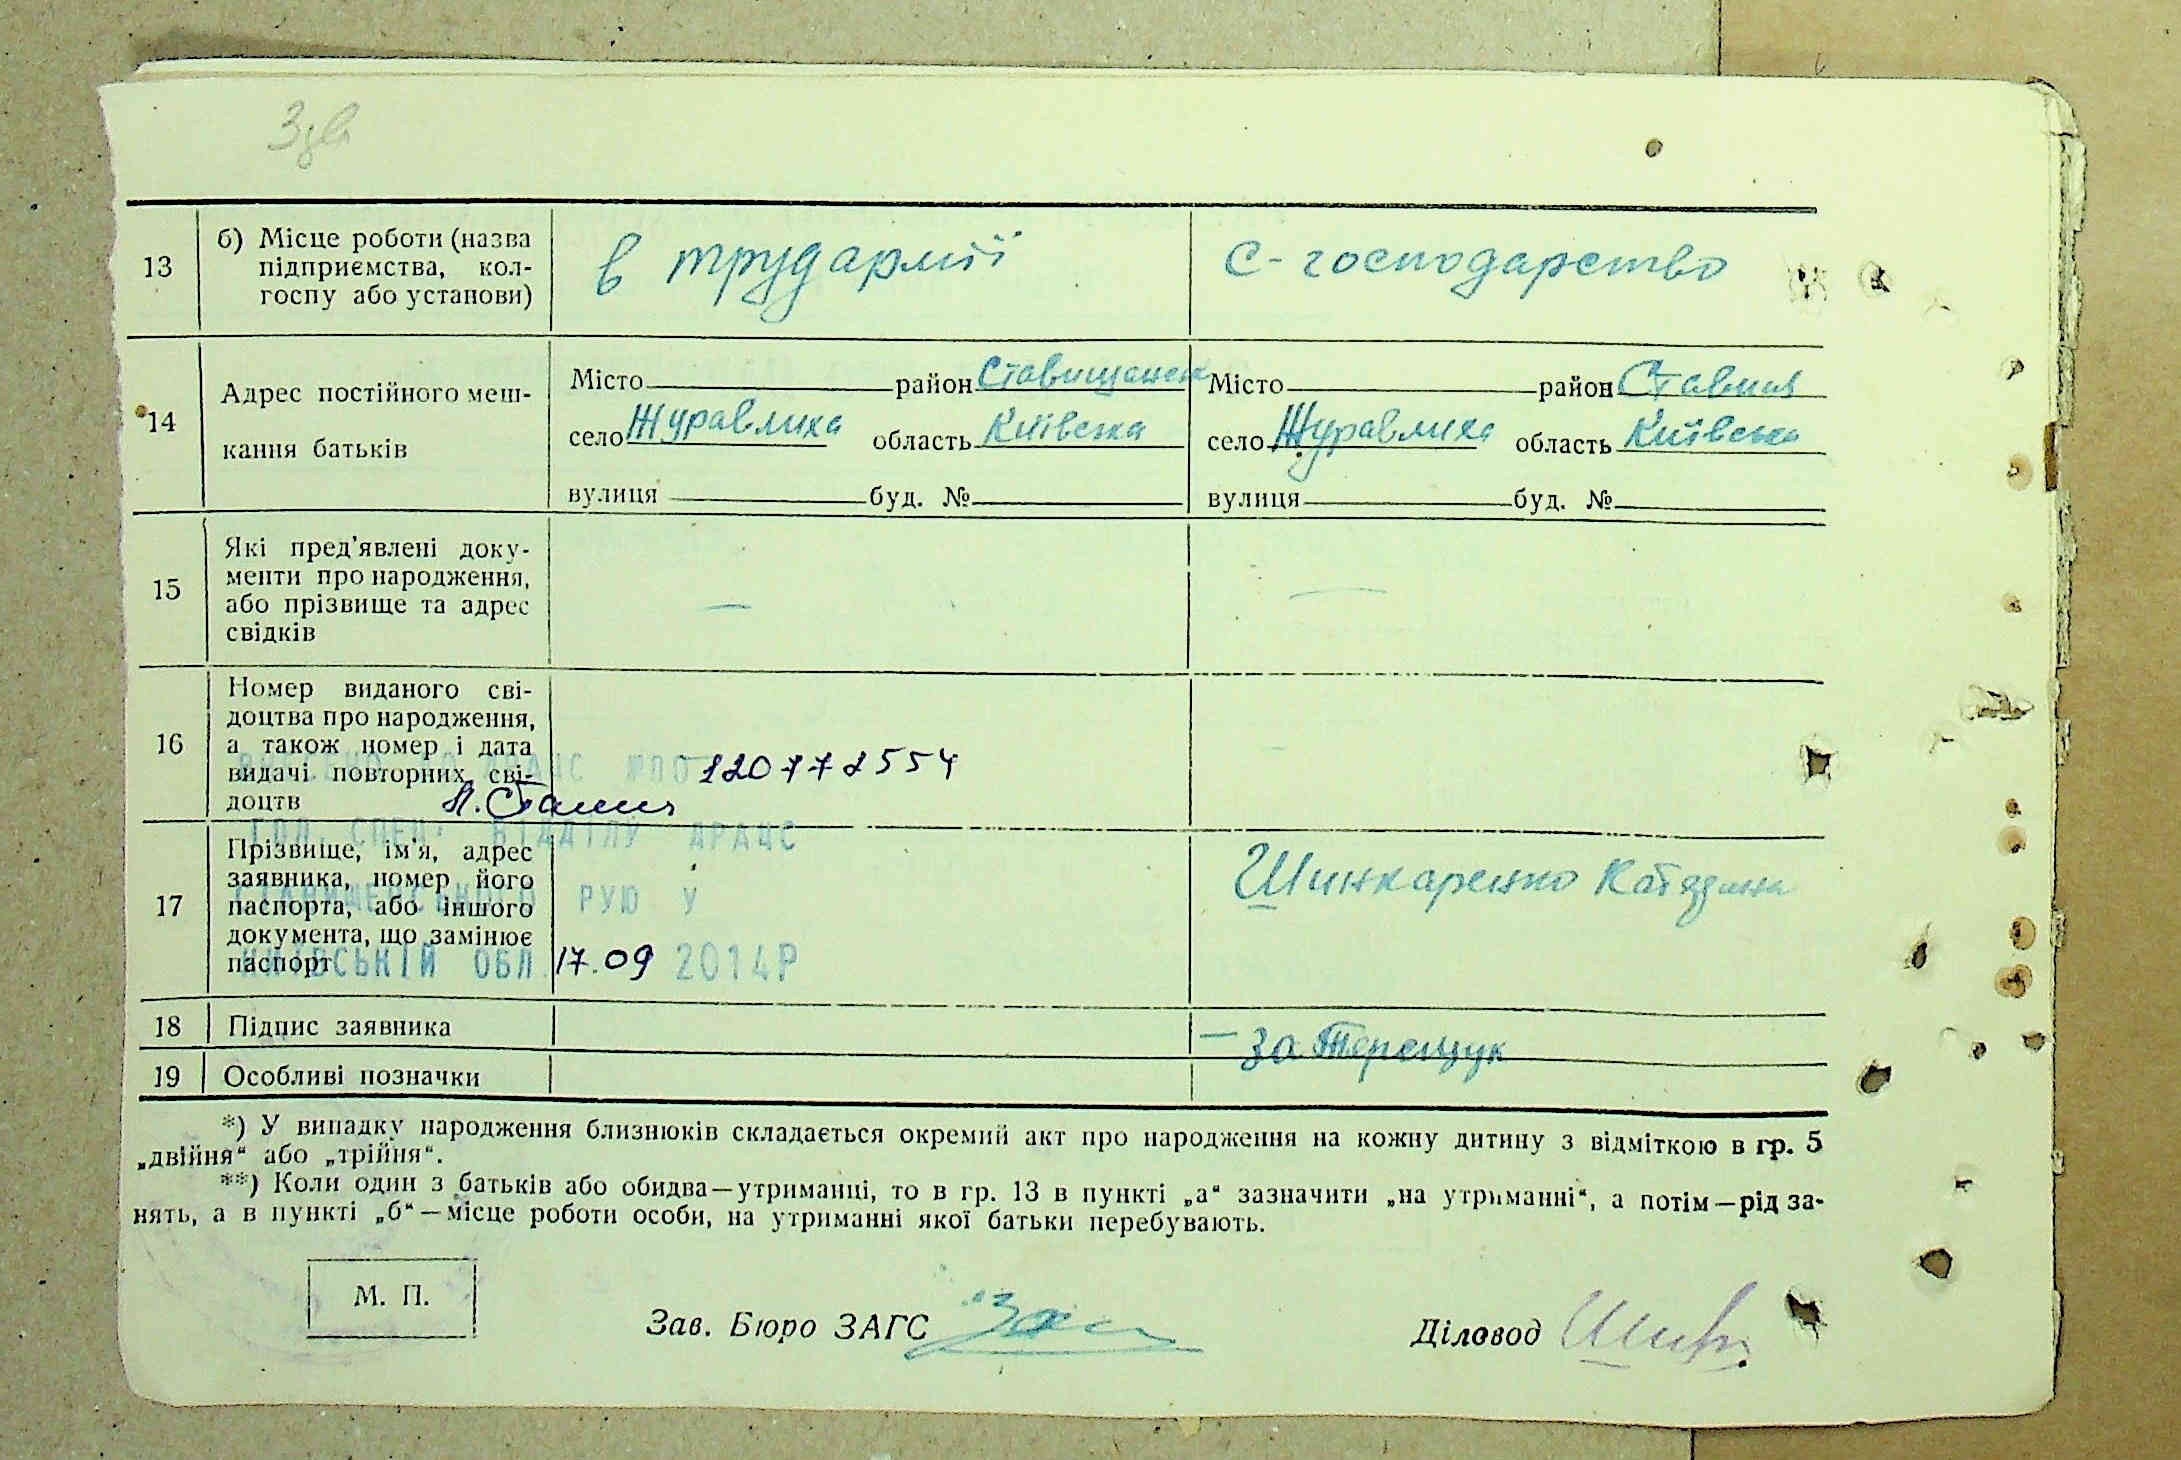 3зв
13
б) Місце роботи (назва
підприємства, кол-
госпу або установи)
в трудармії
С-господарство
14
Адрес постійного меш-
кання батьків
Місто район Ставищанськ
село Журавлиха область Київська
вулиця буд. №
Місто район Ставищ
село Журавлиха область Київська
вулиця буд. №
15
Які пред'явлені доку-
менти про народження,
або прізвище та адрес
свідків
—
—
16
Номер виданого сві-
доцтва про народження,
а також номер і дата
видачі повторних сві-
доцтв
ВНЕСЕНО ДО ДРАЦС №00120772554
ГОЛ. СПЕЦ. ВІДДІЛУ ДРАЦС
СТАВИЩЕНСЬКОГО РУЮ У
КИЇВСЬКІЙ ОБЛ. 17.09 2014Р
17
Прізвище, ім'я, адрес
заявника, номер його
паспорта, або іншого
документа, що замінює
паспорт
Шинкаренко Катерина
18
Підпис заявника
— за Терещук
19
Особливі позначки
*) У випадку народження близнюків складається окремий акт про народження на кожну дитину з відміткою в гр. 5
„двійня“ або „трійня“.
**) Коли один з батьків або обидва—утриманці, то в гр. 13 в пункті „а“ зазначити „на утриманні“, а потім—рід за-
нять, а в пункті „б“—місце роботи особи, на утриманні якої батьки перебувають.
М. П.
Зав. Бюро ЗАГС
Діловод